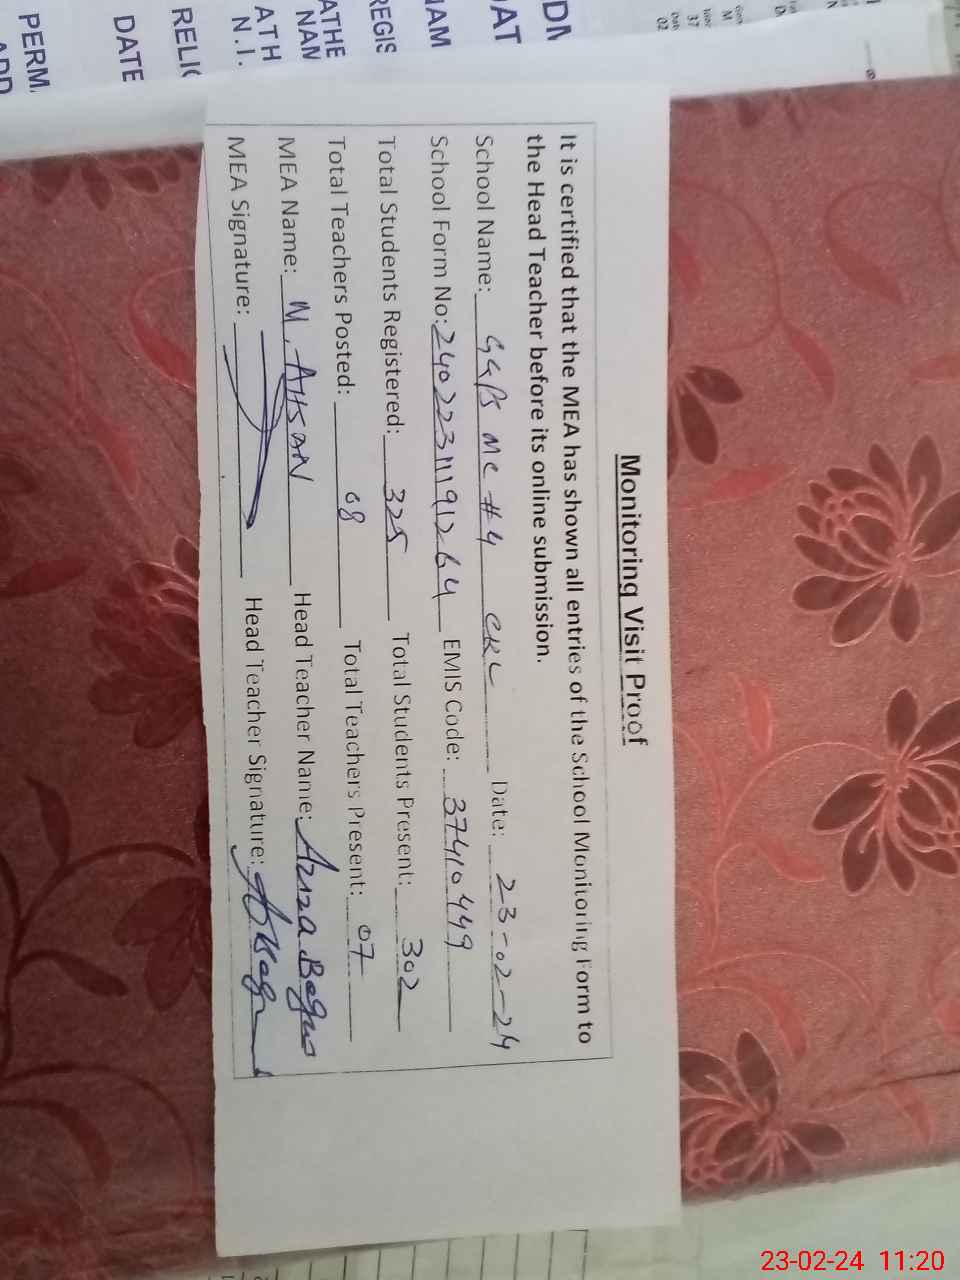 Monitoring Visit Proof
It is certified that the MEA has shown all entries of the School Monitoring Form to
the Head Teacher before its online submission.
School Name: GGPS MC #4 CKL Date: 23-02-24
School Form No: 24022311191264 EMIS Code: 37410449
Total Students Registered: 325 Total Students Present: 302
Total Teachers Posted: 08 Total Teachers Present: 07
MEA Name: M. AHSAN Head Teacher Name: Aziza Begum
MEA Signature: Head Teacher Signature:
DATE
PERM
23-02-24 11:20